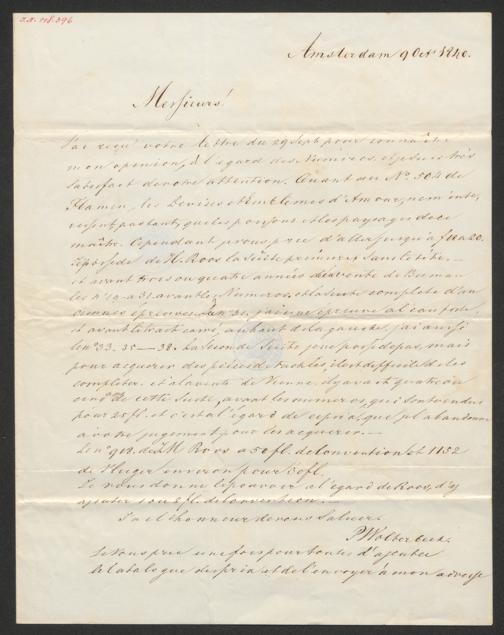 a.a. 118.396
Amsterdam 9 Oct 1840.
Messieurs!
J'ai reçu votre lettre du 29 Sept pour connaître
mon opinion, à l'egard des Numeros. et je suis très
satisfait de votre attention. Quant au No. 504 de
Flamen, les Devises et Emblemes d'Amour, ne m'inte-
ressent pas tant, que les poissons et les paysages de ce
maître. Cependant je vous prie d'aller jusqu'à f 12 a 20.
Je possede de H. Roos la Suite premiere Sans le titre
et avant trois ou quatre années de la vente de
les n° 19 a 31. avant les Numeros. et la Suite complete d'un
épreuves. Du No 31. j'ai une épreuve al eau forte
et avant le trait carré, au haut de la gauche. j'ai aussi
les n° 33. 35 — 38. La Seconde Suite je ne possede pas, mais
pour acquerir des pièces détachées, il est difficile de les
completer. et a la vente de Vienne. il y avait quatre ou
cinq de cette Suite, avant les numeros, qui sont vendus
pour 25 fl. et c'est a l'égard de ce prix, que je l'abandonne
a votre jugement pour les acquerir.
Le n° 918. de J M Roos a 50 fl. de Convention et 1152
de environ pour 50 fl.
Je vous donne le pouvoir a l'égard de Roos, d'y
ajouter 1 ou 2 fl. de Convention.
J'ai l'honneur de vous Saluer.
Je vous prie une fois pour toutes d'ajouter
le Catalogue des prix et de l'envoyer à mon adresse